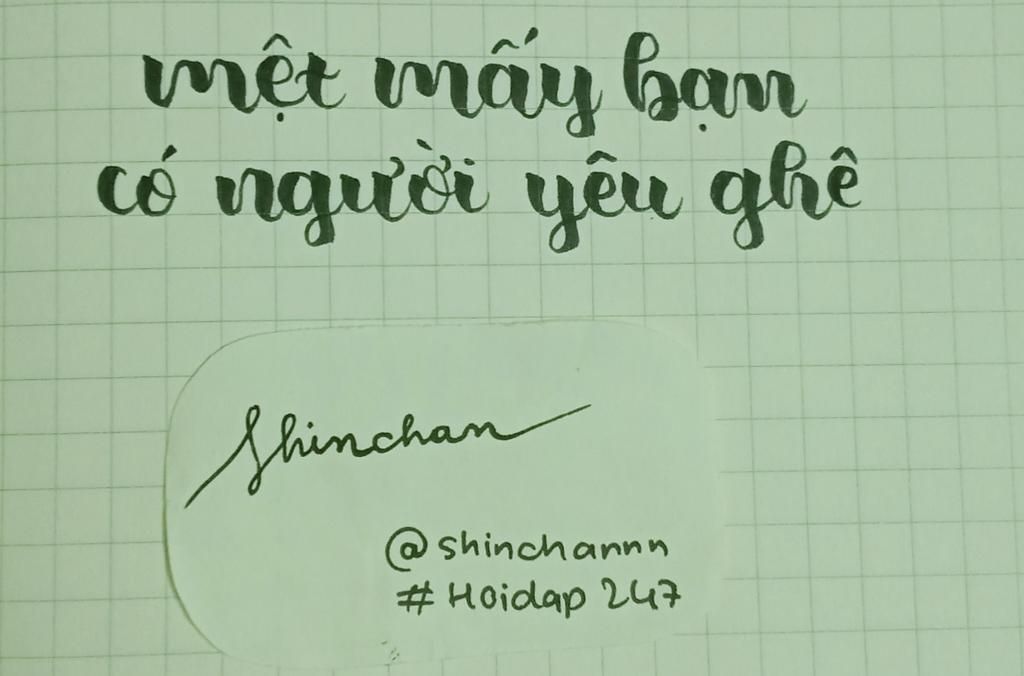 mệt mấy bạn
có người yêu ghê
Shinchan
@shinchannn
# Hoidap 247